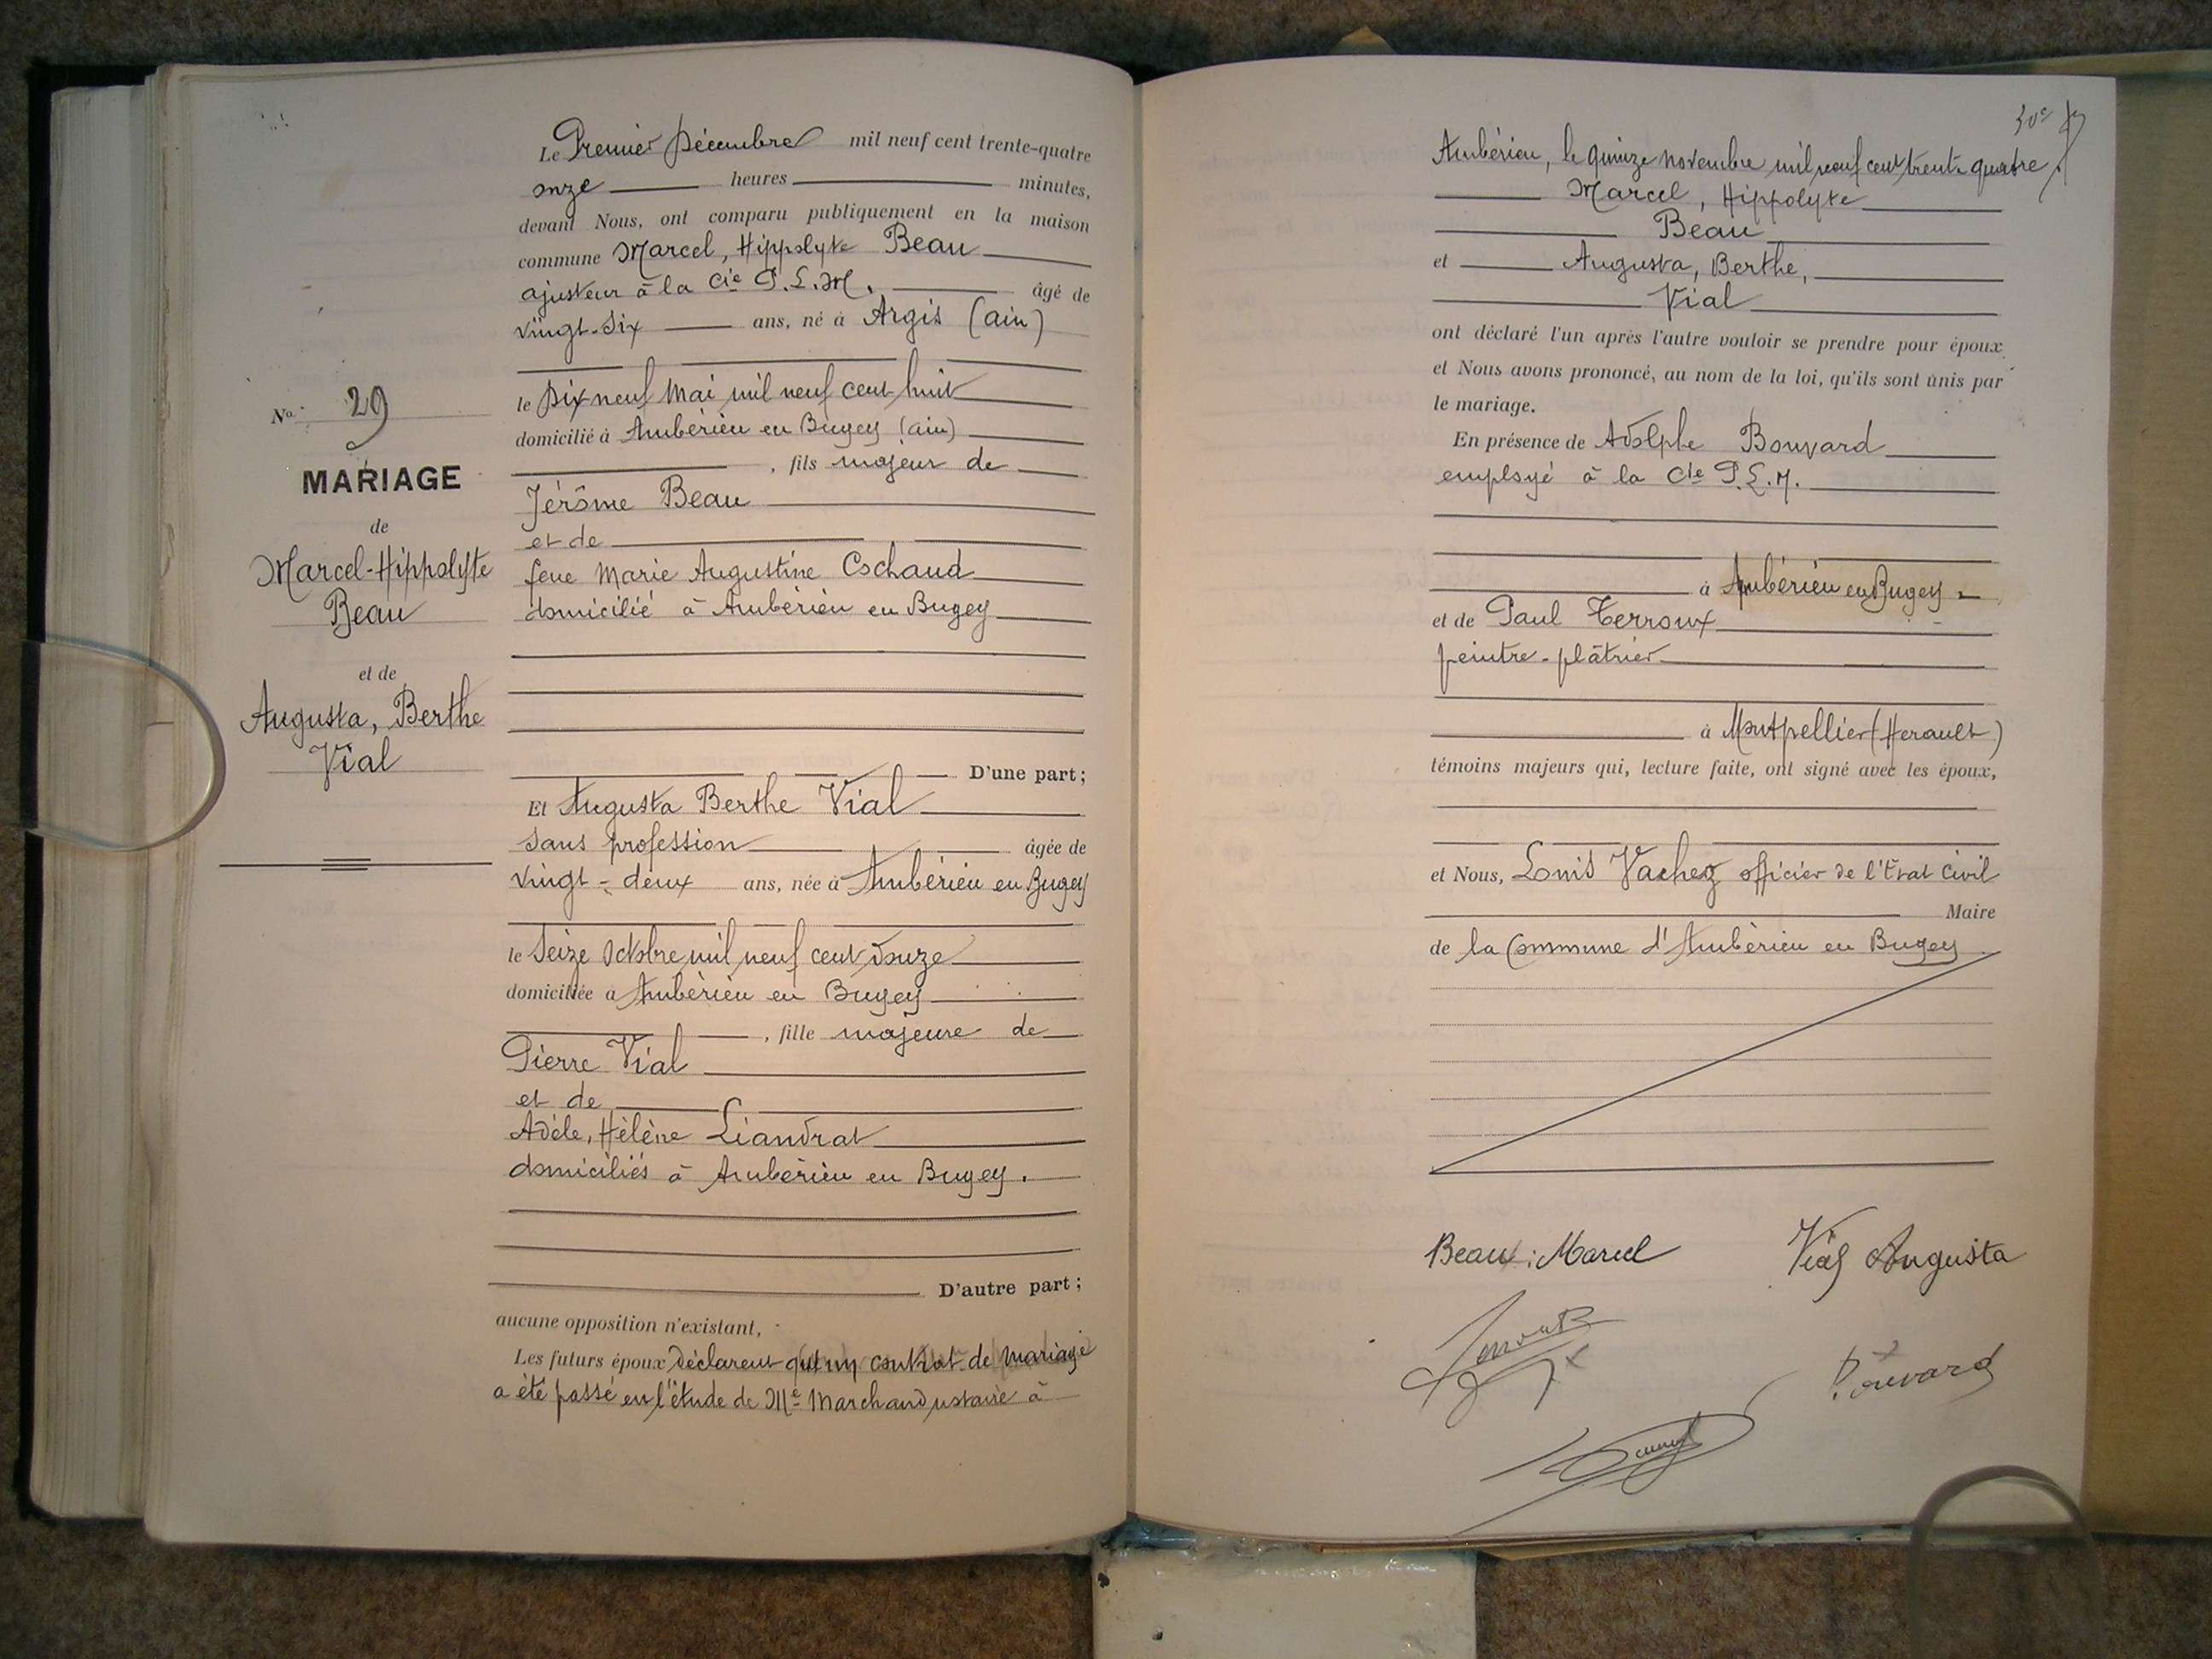 Le Premier Décembre mil neuf cent trente-quatre
onze heures minutes,
devant Nous, ont comparu publiquement en la maison
commune Marcel, Hippolyte Beau
ajusteur à la Cie P.L.M. âgé de
vingt-six ans, né à Argis (ain)
le Dix neuf Mai mil neuf cent huit
domicilié à Ambérieu en Bugey (ain)
, fils majeur de
Jérôme Beau
et de
feue Marie Augustine Cochaud
domicilié à Ambérieu en Bugey
D'une part;
Et Augusta Berthe Vial
Sans profession âgée de
Vingt-deux ans, née à Ambérieu en Bugey
le Seize Octobre mil neuf cent douze
domiciliée à Ambérieu en Bugey
, fille majeure de
Pierre Vial
et de
Adèle, Hélène Liandrat
domiciliés à Ambérieu en Bugey.
D'autre part;
aucune opposition n'existant,
Les futurs époux Déclarent qu'un contrat de mariage
a été passé en l'étude de Me Marchand notaire à
No 29
MARIAGE
de
Marcel-Hippolyte
Beau
et de
Augusta, Berthe
Vial
Ambérieu, le quinze novembre mil neuf cent trente quatre
Marcel, Hippolyte
Beau
et Augusta, Berthe,
Vial
ont déclaré l'un après l'autre vouloir se prendre pour époux
et Nous avons prononcé, au nom de la loi, qu'ils sont unis par
le mariage.
En présence de Adolphe Bouvard
employé à la Cie P.L.M.
à Ambérieu en Bugey
et de Paul Terroux
peintre-plâtrier
à Montpellier (Herault)
témoins majeurs qui, lecture faite, ont signé avec les époux,
et Nous, Louis Vachez officier de l'Etat Civil
Maire
de la Commune d'Ambérieu en Bugey
Beau Marcel
Vial Augusta
Bouvard